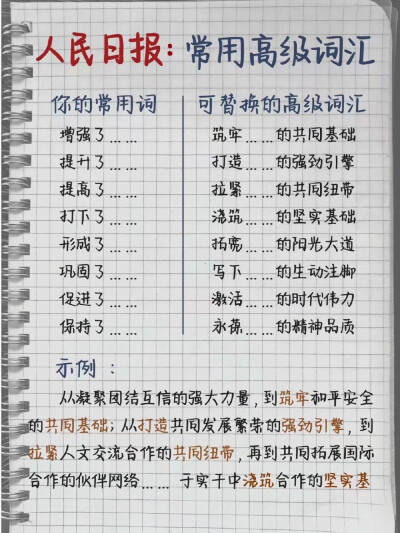 人民日报：常用高级词汇
你的常用词 可替换的高级词汇
增强了…… 筑牢……的共同基础
提升了…… 打造……的强劲引擎
提高了…… 拉紧……的共同纽带
打下了…… 浇筑……的坚实基础
形成了…… 拓宽……的阳光大道
巩固了…… 写下……的生动注脚
促进了…… 激活……的时代伟力
保持了…… 永葆……的精神品质
示例：
从凝聚团结互信的强大力量，到筑牢和平安全
的共同基础；从打造共同发展繁荣的强劲引擎，到
拉紧人文交流合作的共同纽带，再到共同拓展国际
合作的伙伴网络……于实干中浇筑合作的坚实基